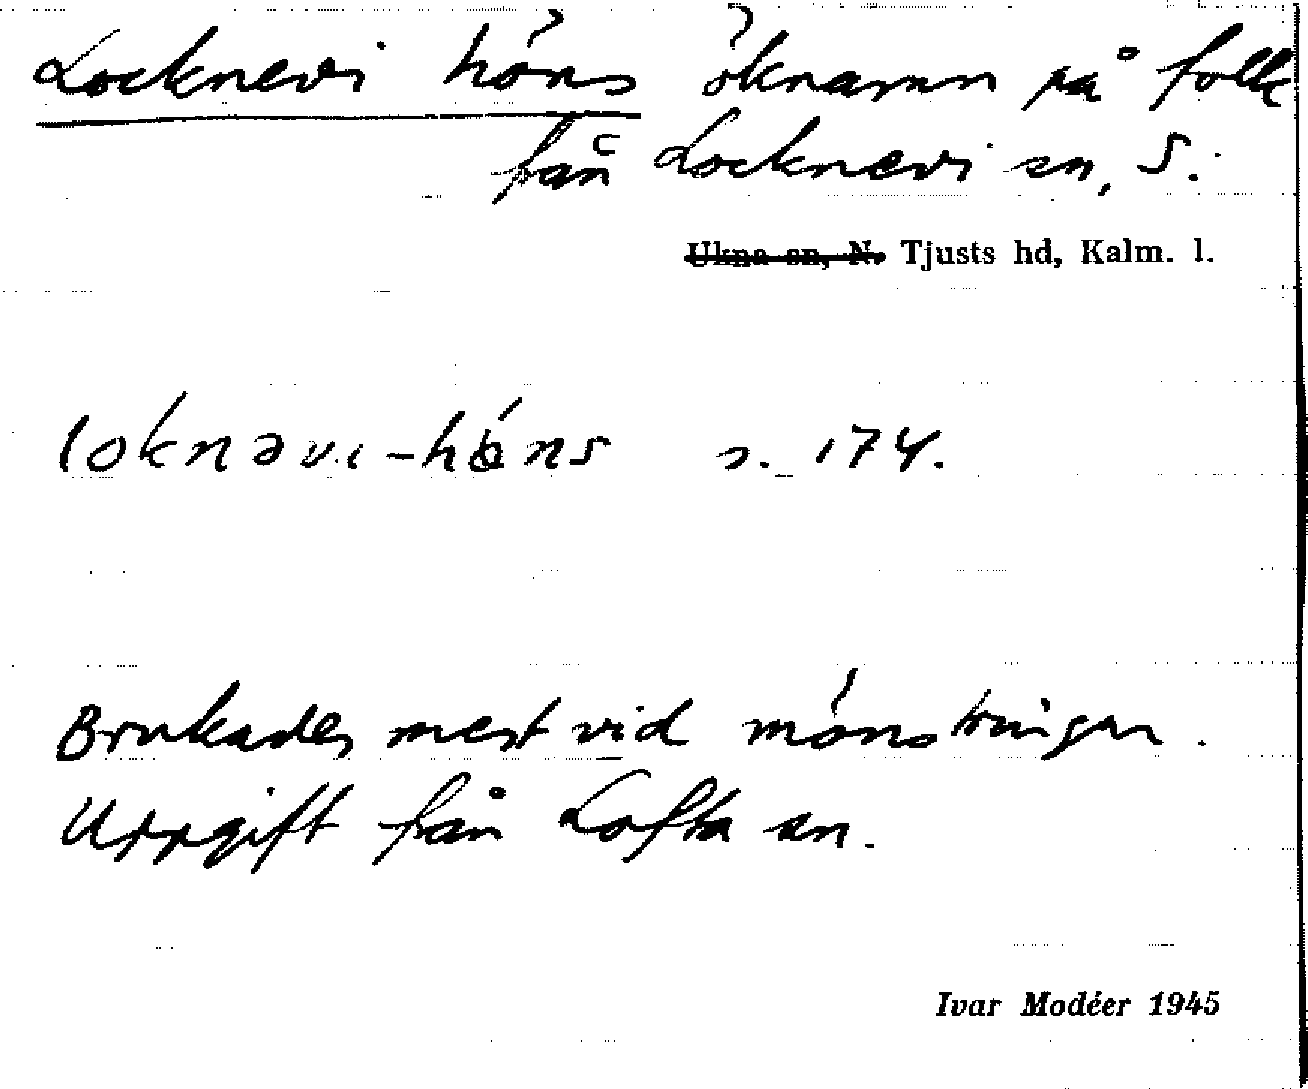 Locknevi höns öknamn på folk
från Locknevi sn, S.
Ukna sn, N. Tjusts hd, Kalm. l.
s. 174.
Brukades mest vid mönstringar.
Uppgift från Lofta sn.
Ivar Modéer 1945